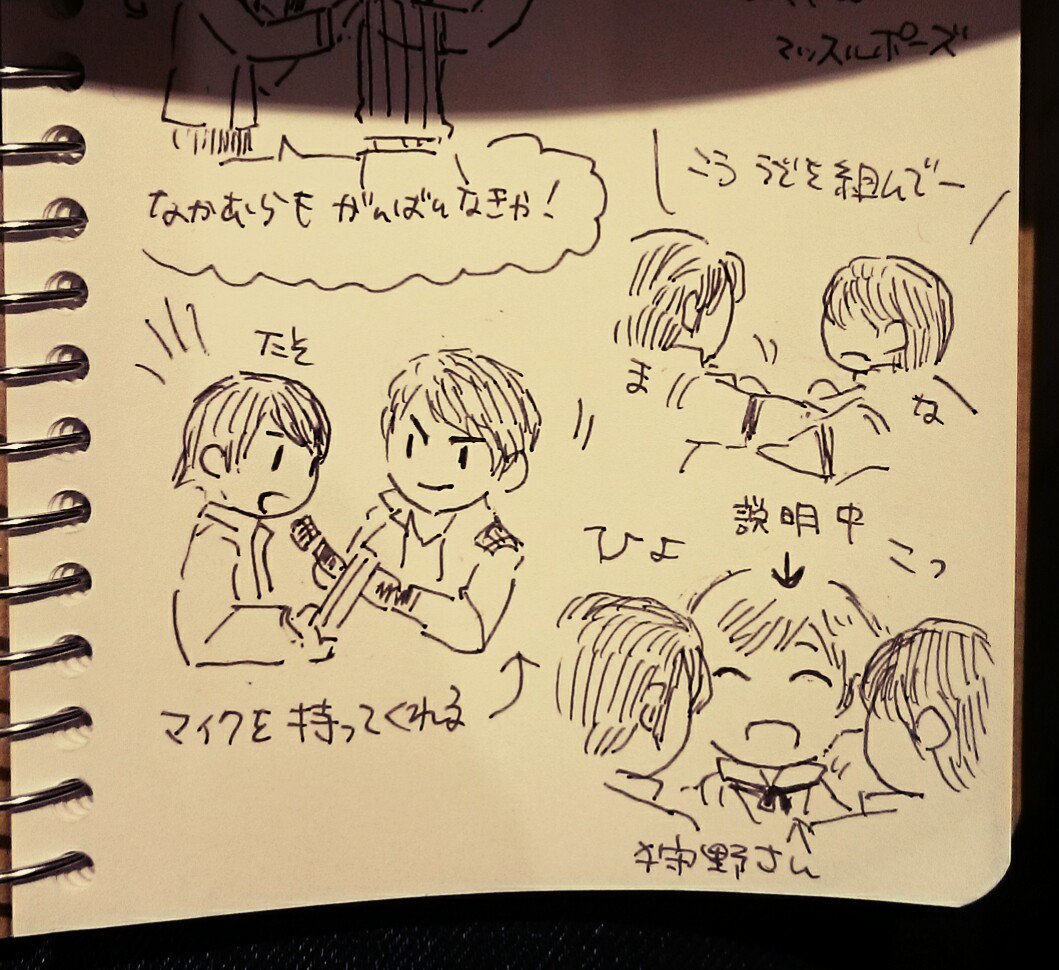 マッスルポーズ
なかむらも がんばんなきゃ!
こう うでを組んでー
たそ
ま
な
説明中
ひょ
こっ
マイクを持ってくれる
狩野さん